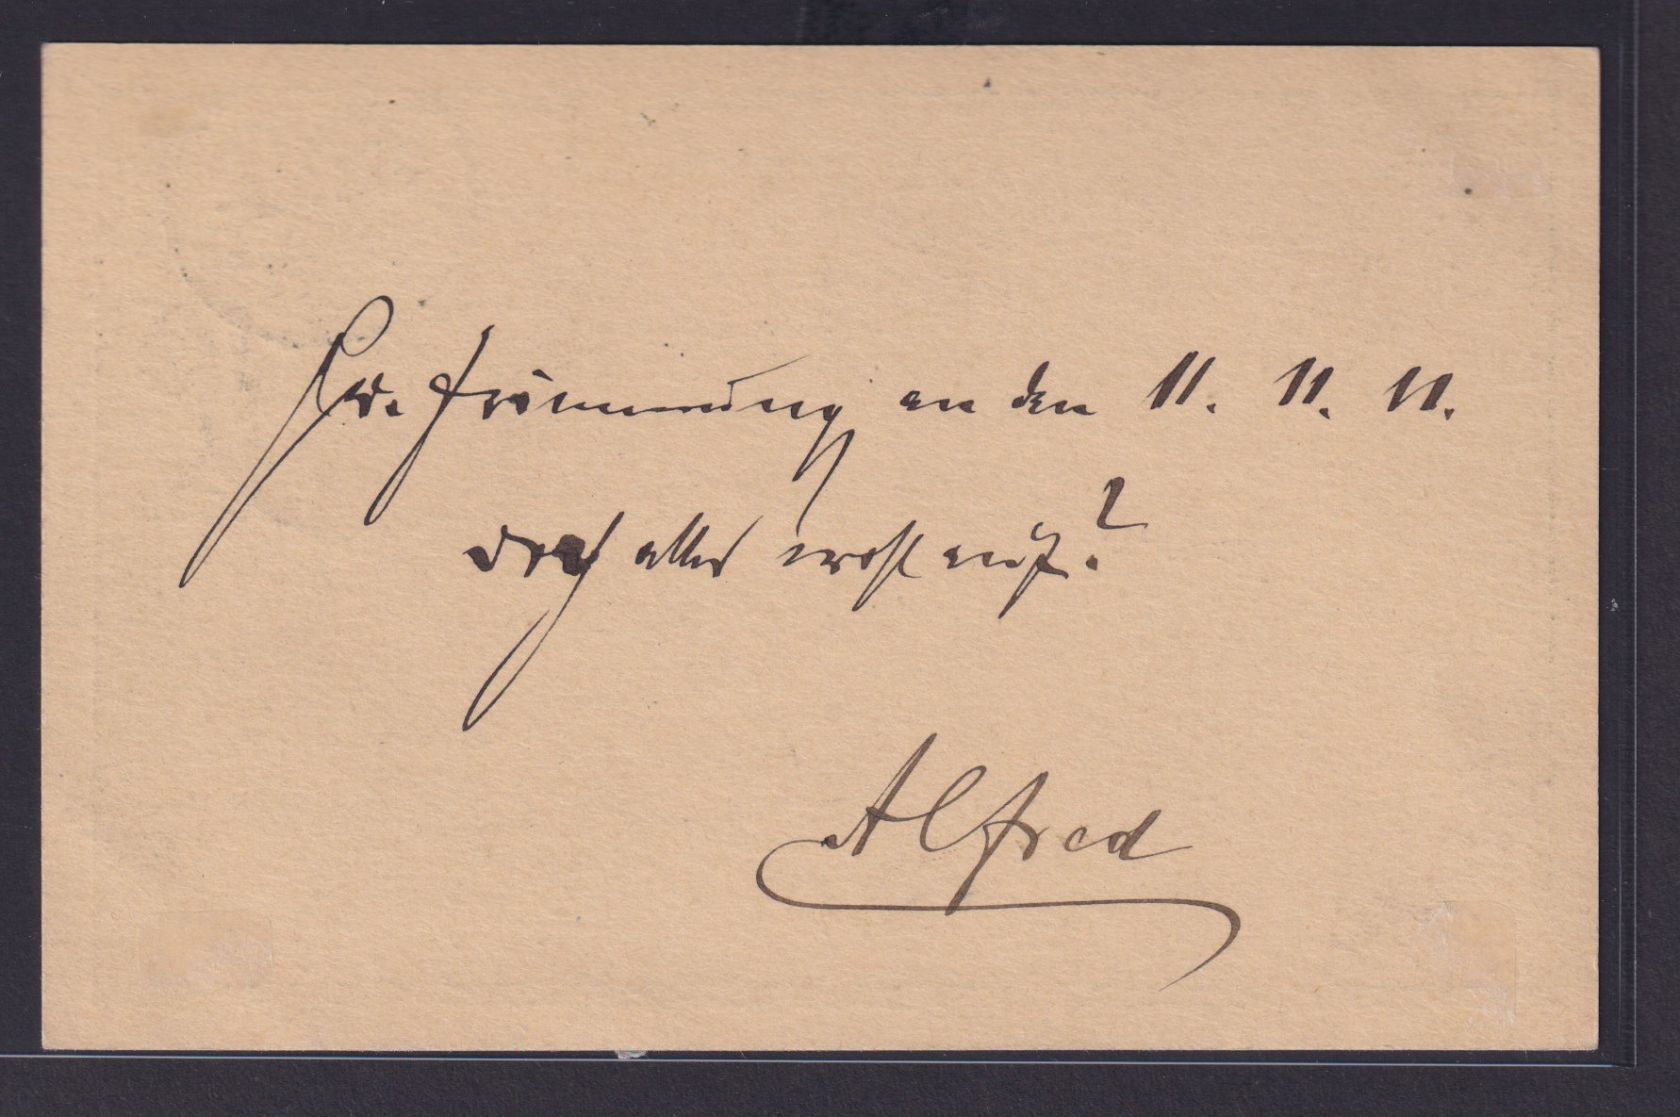 Zur Erinnerung an den 11. 11. 11.
doch alles wohl auf?
Alfred